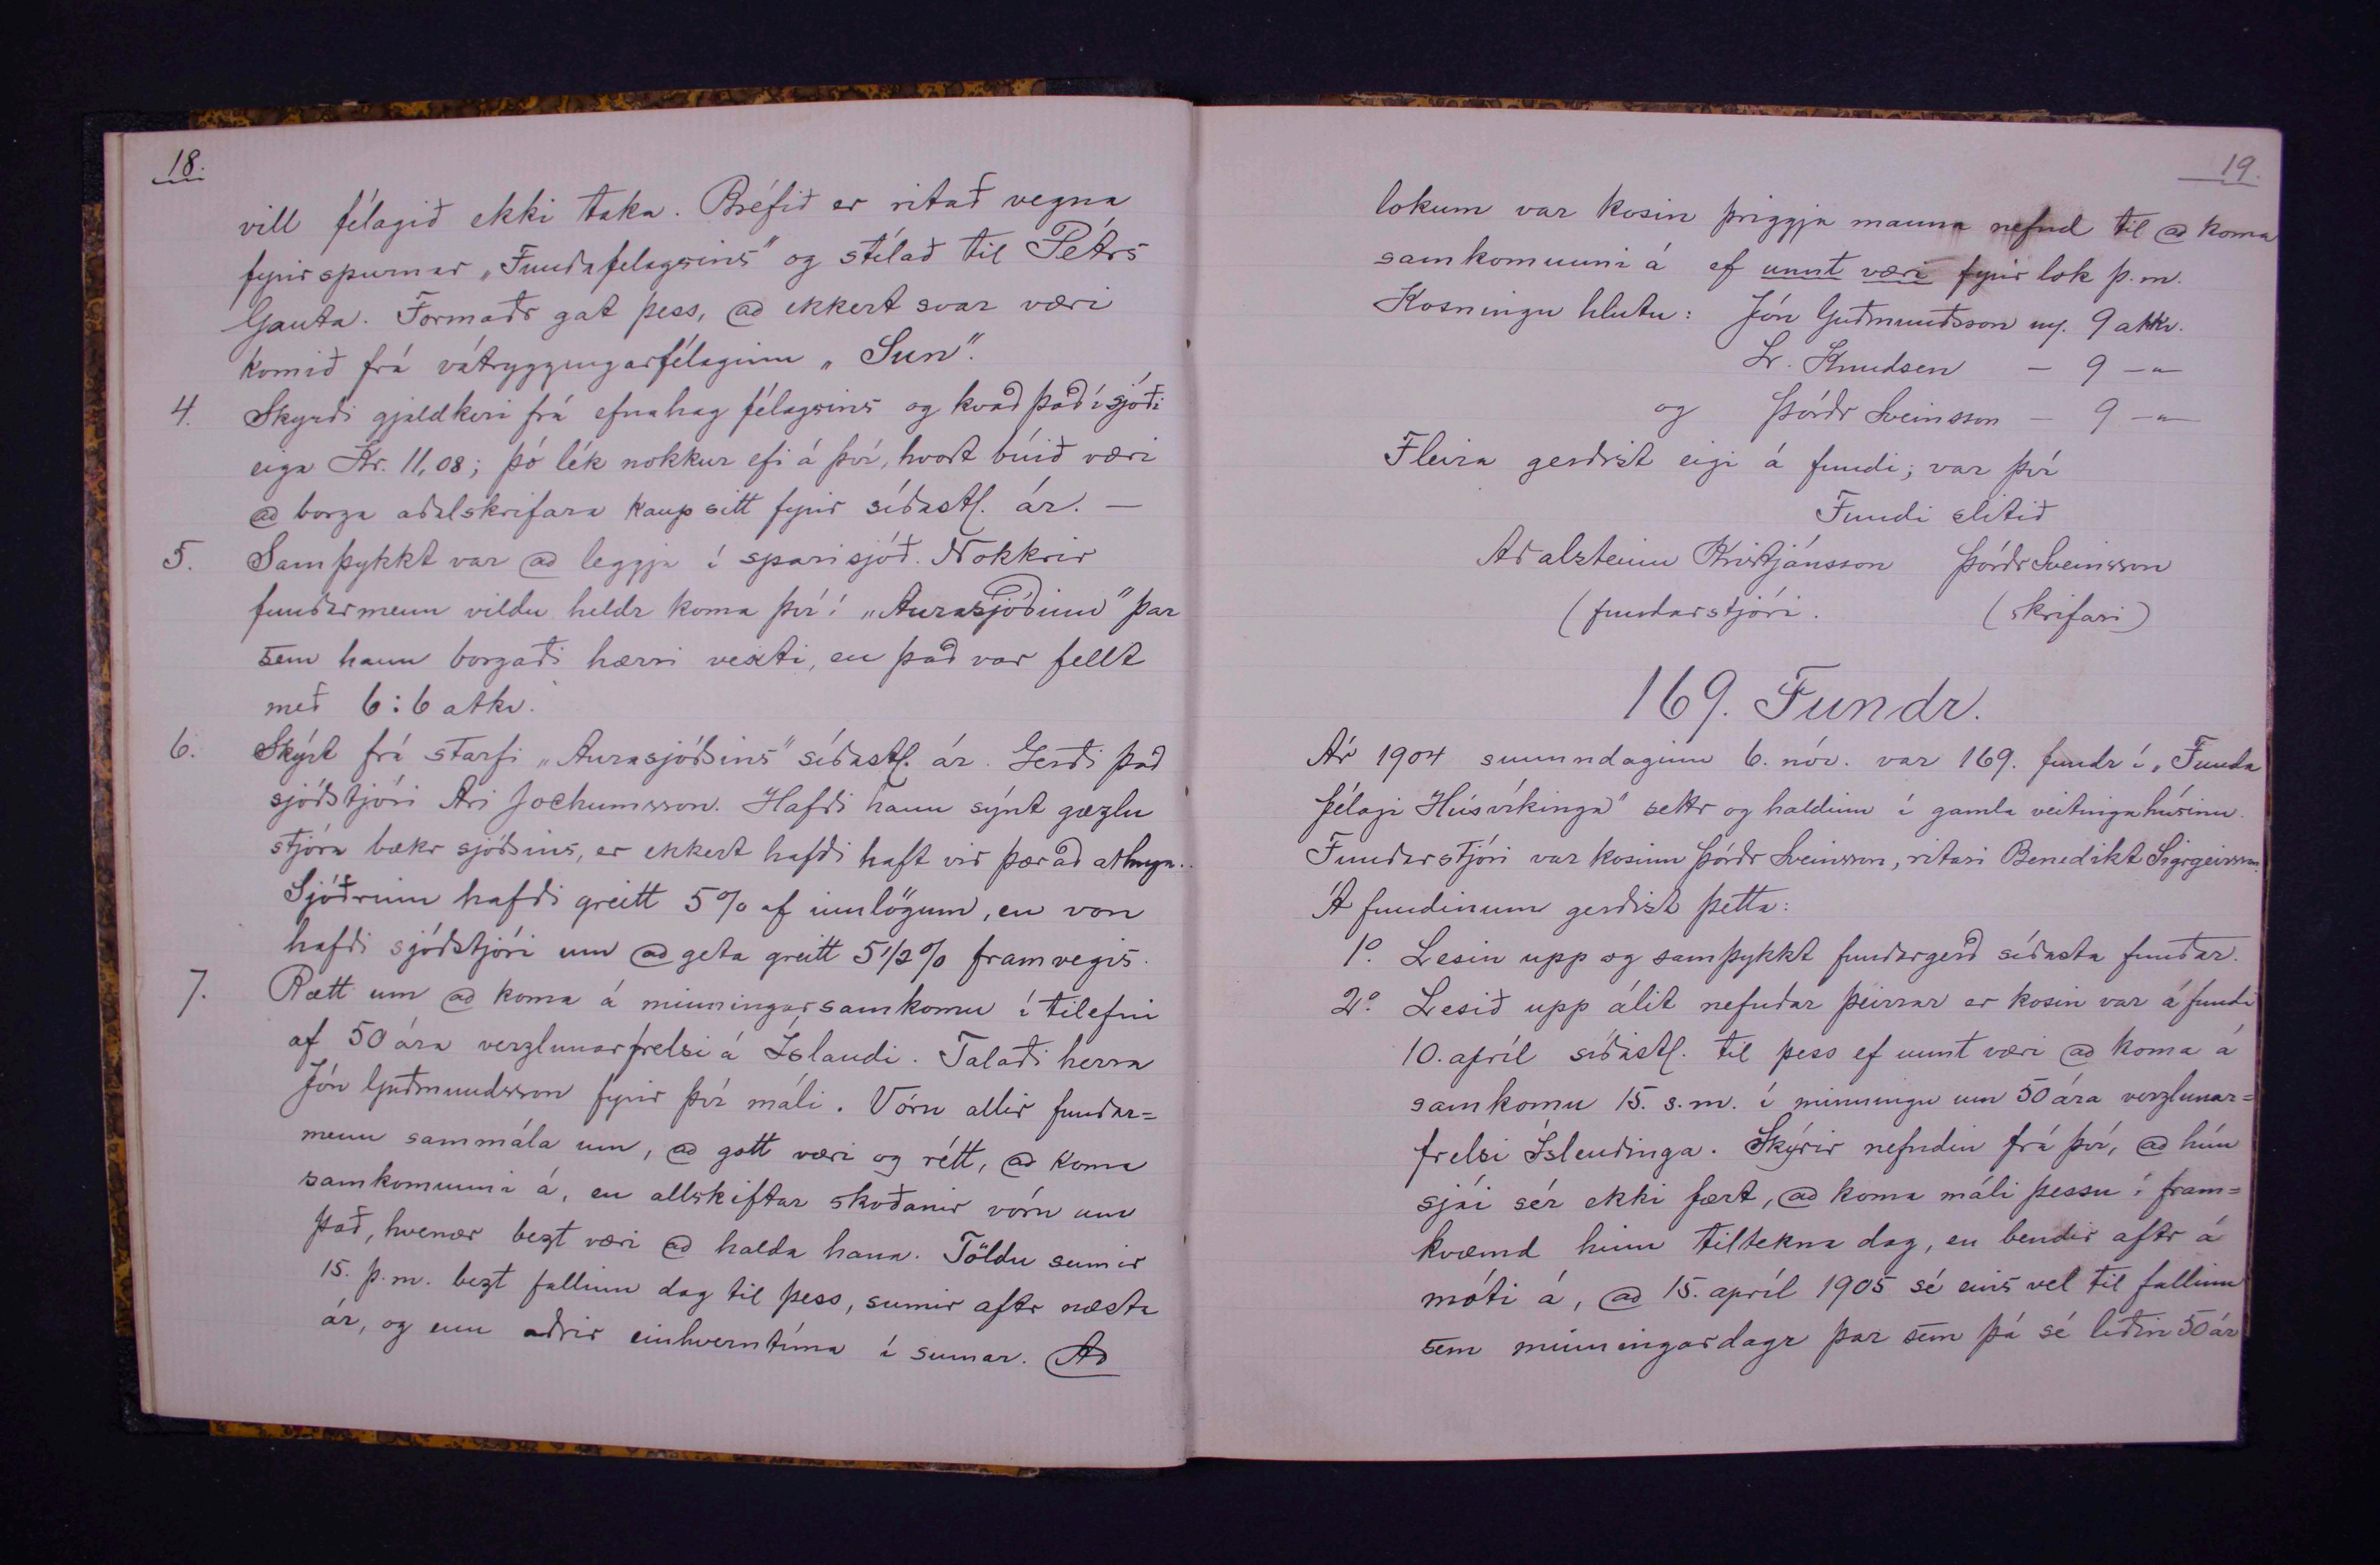 18.
vill félagið ekki taka. Bréfið er ritað vegna
fyrirspurnar „Fundafelagsins" og stílað til Pétrs
Gauta. Formaðr gat þess, að ekkert svar væri
komið frá vátryggingarfélaginu „Sun".
4. Skyrði gjaldkeri frá efnahag félagsins og kvað það í sjóði
eiga Kr. 11,08; þó lék nokkur efi á því, hvort búið væri
að borga aðalskrifara kaup sitt fyrir síðastl. ár. —
5. Samþykkt var að leggja í sparisjóð. Nokkrir
fundarmenn vildu heldr koma því í „Aurasjóðinn" þar
sem hann borgaði hærri vexti, en það var fellt
með 6:6 atkv.
6. Skýrt frá starfi „Aurasjóðsins" síðastl. ár. Gerði það
sjóðstjóri Ari Jochumsson. Hafði hann sýnt gæzlu
stjóra bækr sjóðsins, er ekkert hafði haft við þær að athuga.
Sjóðrinn hafði greitt 5% af innlögum, en von
hafði sjóðstjóri um að geta greitt 5 1/2% framvegis.
7. Rætt um að koma á minningarsamkomu í tilefni
af 50 ára verzlunarfrelsi á Íslandi. Talaði herra
Jón Guðmundsson fyrir því máli. Vóru allir fundar=
menn sammála um, að gott væri og rétt, að koma
samkomunni á, en allskiftar skoðanir vóru um
það, hvenær bezt væri að halda hana. Töldu sumir
15. þ.m. bezt fallinn dag til þess, sumir aftr næsta
ár, og enn aðrir einhverntíma í sumar. Að
19.
lokum var kosin þriggja manna nefnd til að koma
samkomunni á ef unnt væri fyrir lok þ.m.
Kosningu hlutu: Jón Guðmundsson m. 9 atkv.
Lr. Knudsen — 9 —"—
og Þórðr Sveinsson — 9 —"—
Fleira gerðist eigi á fundi; var því
Fundi slitið
Aðalsteinn Kristjánsson Þórðr Sveinsson
(fundarstjóri. (skrifari)
169. Fundr.
Ár 1904 sunnudaginn 6. nóv. var 169. fundr í „Funda
félagi Húsvíkinga" settr og haldinn í gamla veitingahúsinu.
Fundarstjóri var kosinn Þórðr Sveinsson, ritari Benedikt Sigrgeirsson.
Á fundinum gerðist þetta:
1o. Lesin upp og samþykkt fundargerð síðasta fundar.
2o. Lesið upp álit nefndar þeirrar er kosin var á fundi
10. apríl síðastl. til þess ef unnt væri að koma á
samkomu 15. s.m. í minningu um 50 ára verzlunar=
frelsi Íslendinga. Skýrir nefndin frá því, að hún
sjái sér ekki fært, að koma máli þessu í fram=
kvæmd hinn tiltekna dag, en bendir aftr á
móti á, að 15. apríl 1905 sé eins vel til fallinn
sem minningardagr þar sem þá sé liðin 50 ár